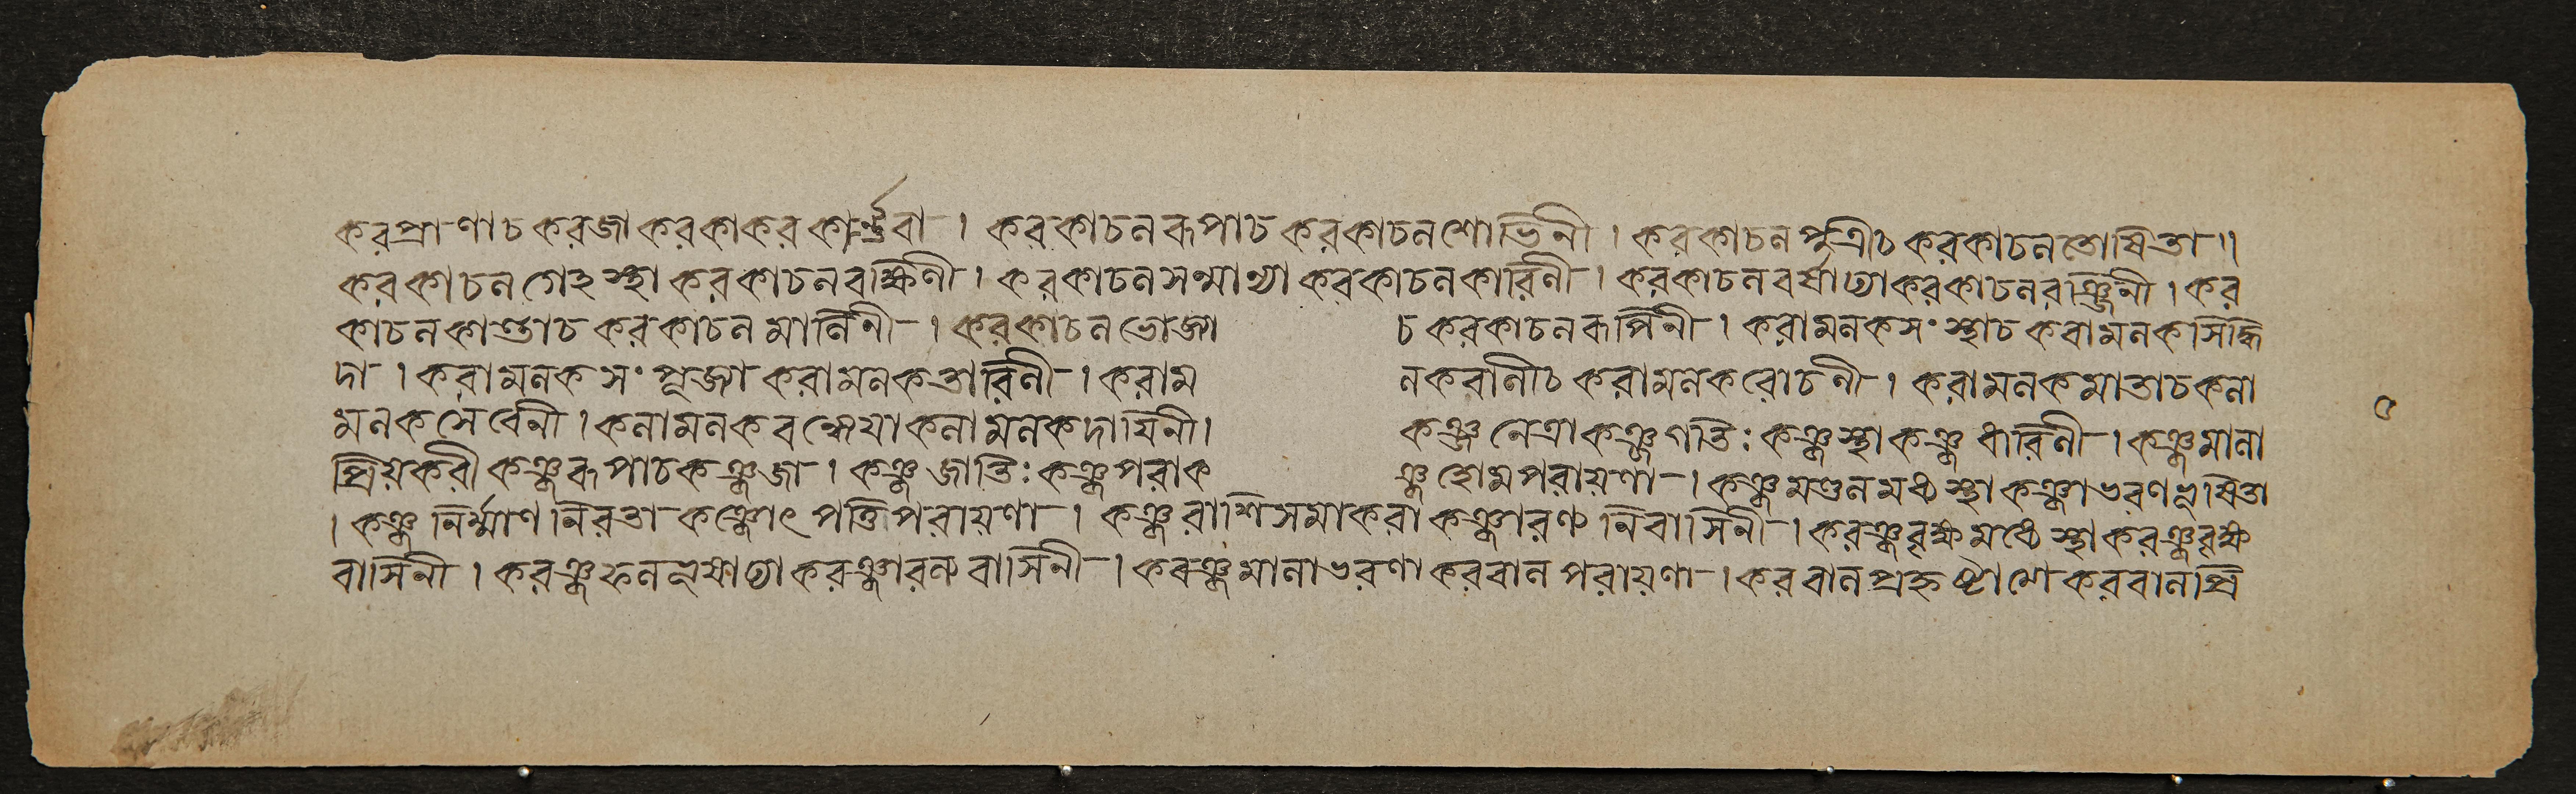 করপ্রাণাচ করজা করকা করকার্ণ্ণবা । করকাচনরূপাচ করকাচনশোভিনী । করকাচনপুত্রীচ করকাচনতোষিতা ॥
করকাচনগেহস্থা করকাচনরক্ষিণী । করকাচনসন্মান্যা করকাচনকারিণী । করকাচনবর্ষাঢ্যা করকাচনরঞ্জিনী । কর
কাচনকান্তাচ করকাচনমানিনী । করকাচনভোজা চ করকাচনরূপিনী । করামনকসংস্থাচ করামনকসিদ্ধি
দা । করামনকসংপূজ্যা করামনকতারিণী । করামনকরাণীচ করামনকরোচনী । করামনকমাতাচ কনা
মনকসেবেনী । কনামনকবন্ধ্যেয়া কনামনকদায়িনী । কঞ্জনেত্রা কঞ্জগতিঃ কঞ্জস্থা কঞ্জধারিণী । কঞ্জমানা
প্রিয়করী কঞ্জরূপাচ কঞ্জজা । কঞ্জজাতিঃ কঞ্জপরা কঞ্জহোমপরায়ণা । কঞ্জমণ্ডনমধ্যস্থা কঞ্জাভরণভূষিতা
। কঞ্জনির্ম্মাণনিরতা কঞ্জোৎপত্তিপরায়ণা । কঞ্জরাশিসমাকরা কঞ্জারণ্যনিবাসিনী । করঞ্জবৃক্ষমধ্যেস্থা করঞ্জবৃক্ষ
বাসিনী । করঞ্জফনভূষাঢ্যা করঞ্জারন্যবাসিনী । করঞ্জমানাভরণা করবানপরায়ণা । করবানপ্রহৃষ্টা করবানপ্রি
৫